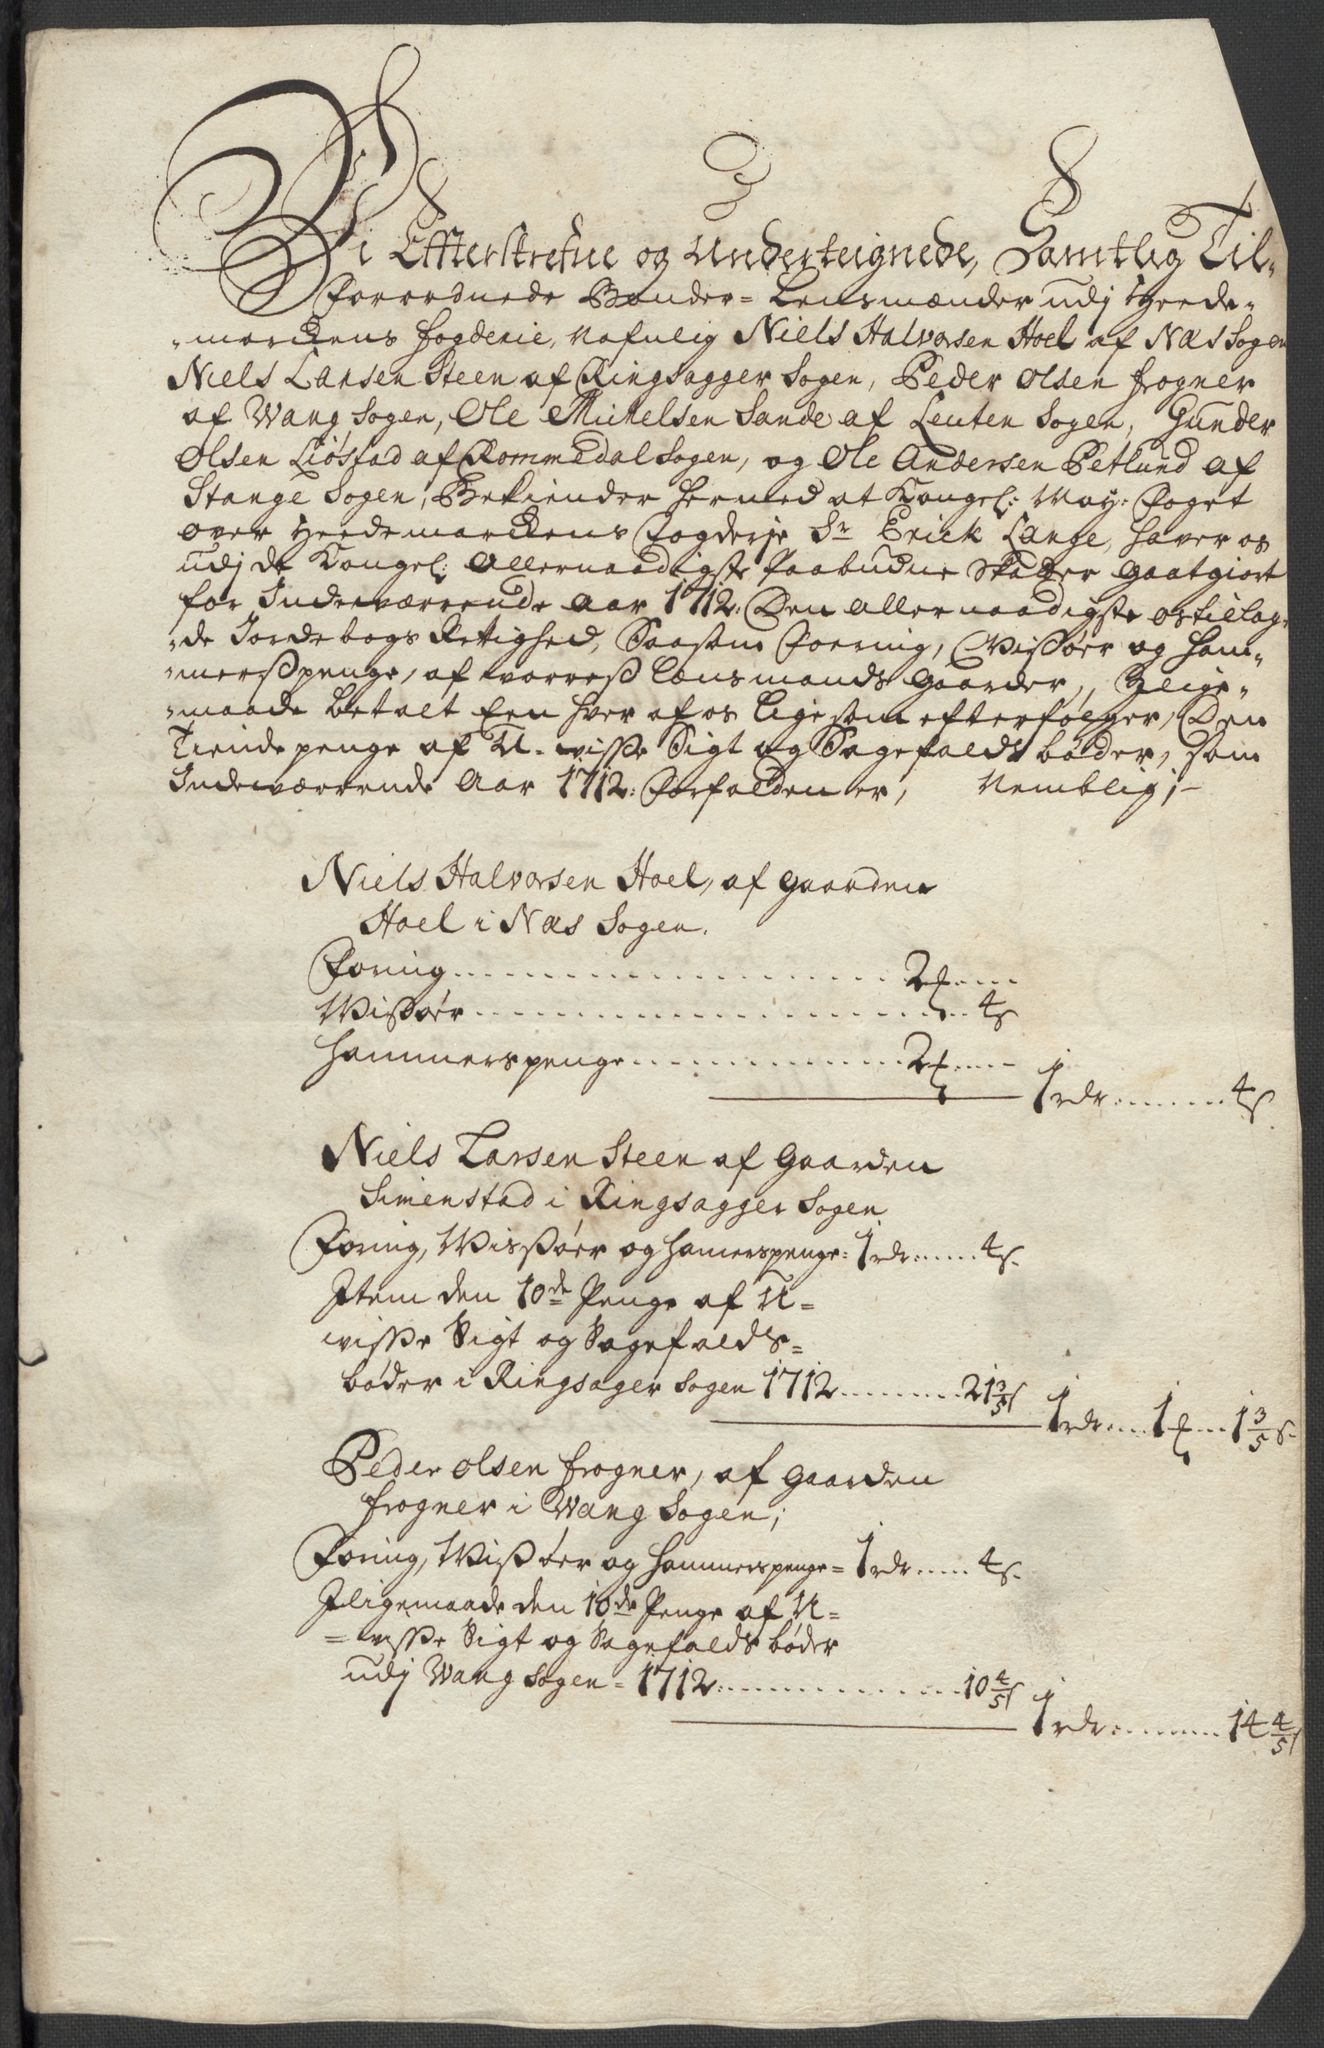 Vi Effterskrefne og Underteignede, Samtlig Til-
forordnede Bønder-Lensmænder udj Heede-
marckens fogderie, Nafnlig Niels Halvorsen Hoel af Næs Sogen
Niels Larsen Steen af Ringsagger Sogen, Peder Olsen frogner
af Wang Sogen, Ole Michelsen Sande af Leuten Sogen, Gunder
Olsen Liøstad af Rommedal Sogen, og Ole Andersen Petlund af
Stange Sogen, Bekiender hermed at Kongel: May: Foget
over Heedemarckens Fogderje Sr Erick Lange, haver os
udj de Kongel: Allernaadigste Paabudne Skatter gaatgiort
for Indeværende Aar 1712. Den allernaadigste os tillag-
de Jordebogs Rettighed, Saasom Foering, Wissøer og Ham-
merspenge, afworres Lænsmands Gaarder, Jlige-
maade betalt Een hver af os ligesom efterfølger, Den
Tiende penge af U-wisse Sigt og Sagefalds bøder, som
Indeværende Aar 1712: Forfalden er, Nemblig;
Niels Halvorsen Hoel, af gaarden
Hoel i Næs Sogen.
Foring 2 ʒ
Wissøer 4 s
Hammerspenge 2 ʒ 1 rdr 4 s
Niels Larsen Steen af Gaarden
Simenstad i Ringsagger Sogen
Foring, Wissøer og Hamerspenge = 1 rdr 4 s.
Item den 10de Penge af U=
wisse Sigt og Sagefalds=
bøder i Ringsager Sogen 1712 21 3/5 s 1 rdr 1 ʒ 1 3/5 s
Peder Olsen frogner, af gaarden
frogner i Wang Sogen;
Foring, Wissøer og Hammerspenge = 1 rdr 4 s.
Jligemaade den 10de Penge af U=
= wisse Sigt og Sagefalds bøder
udj Wang Sogen = 1712 10 4/5 s 1 rdr 14 4/5 s